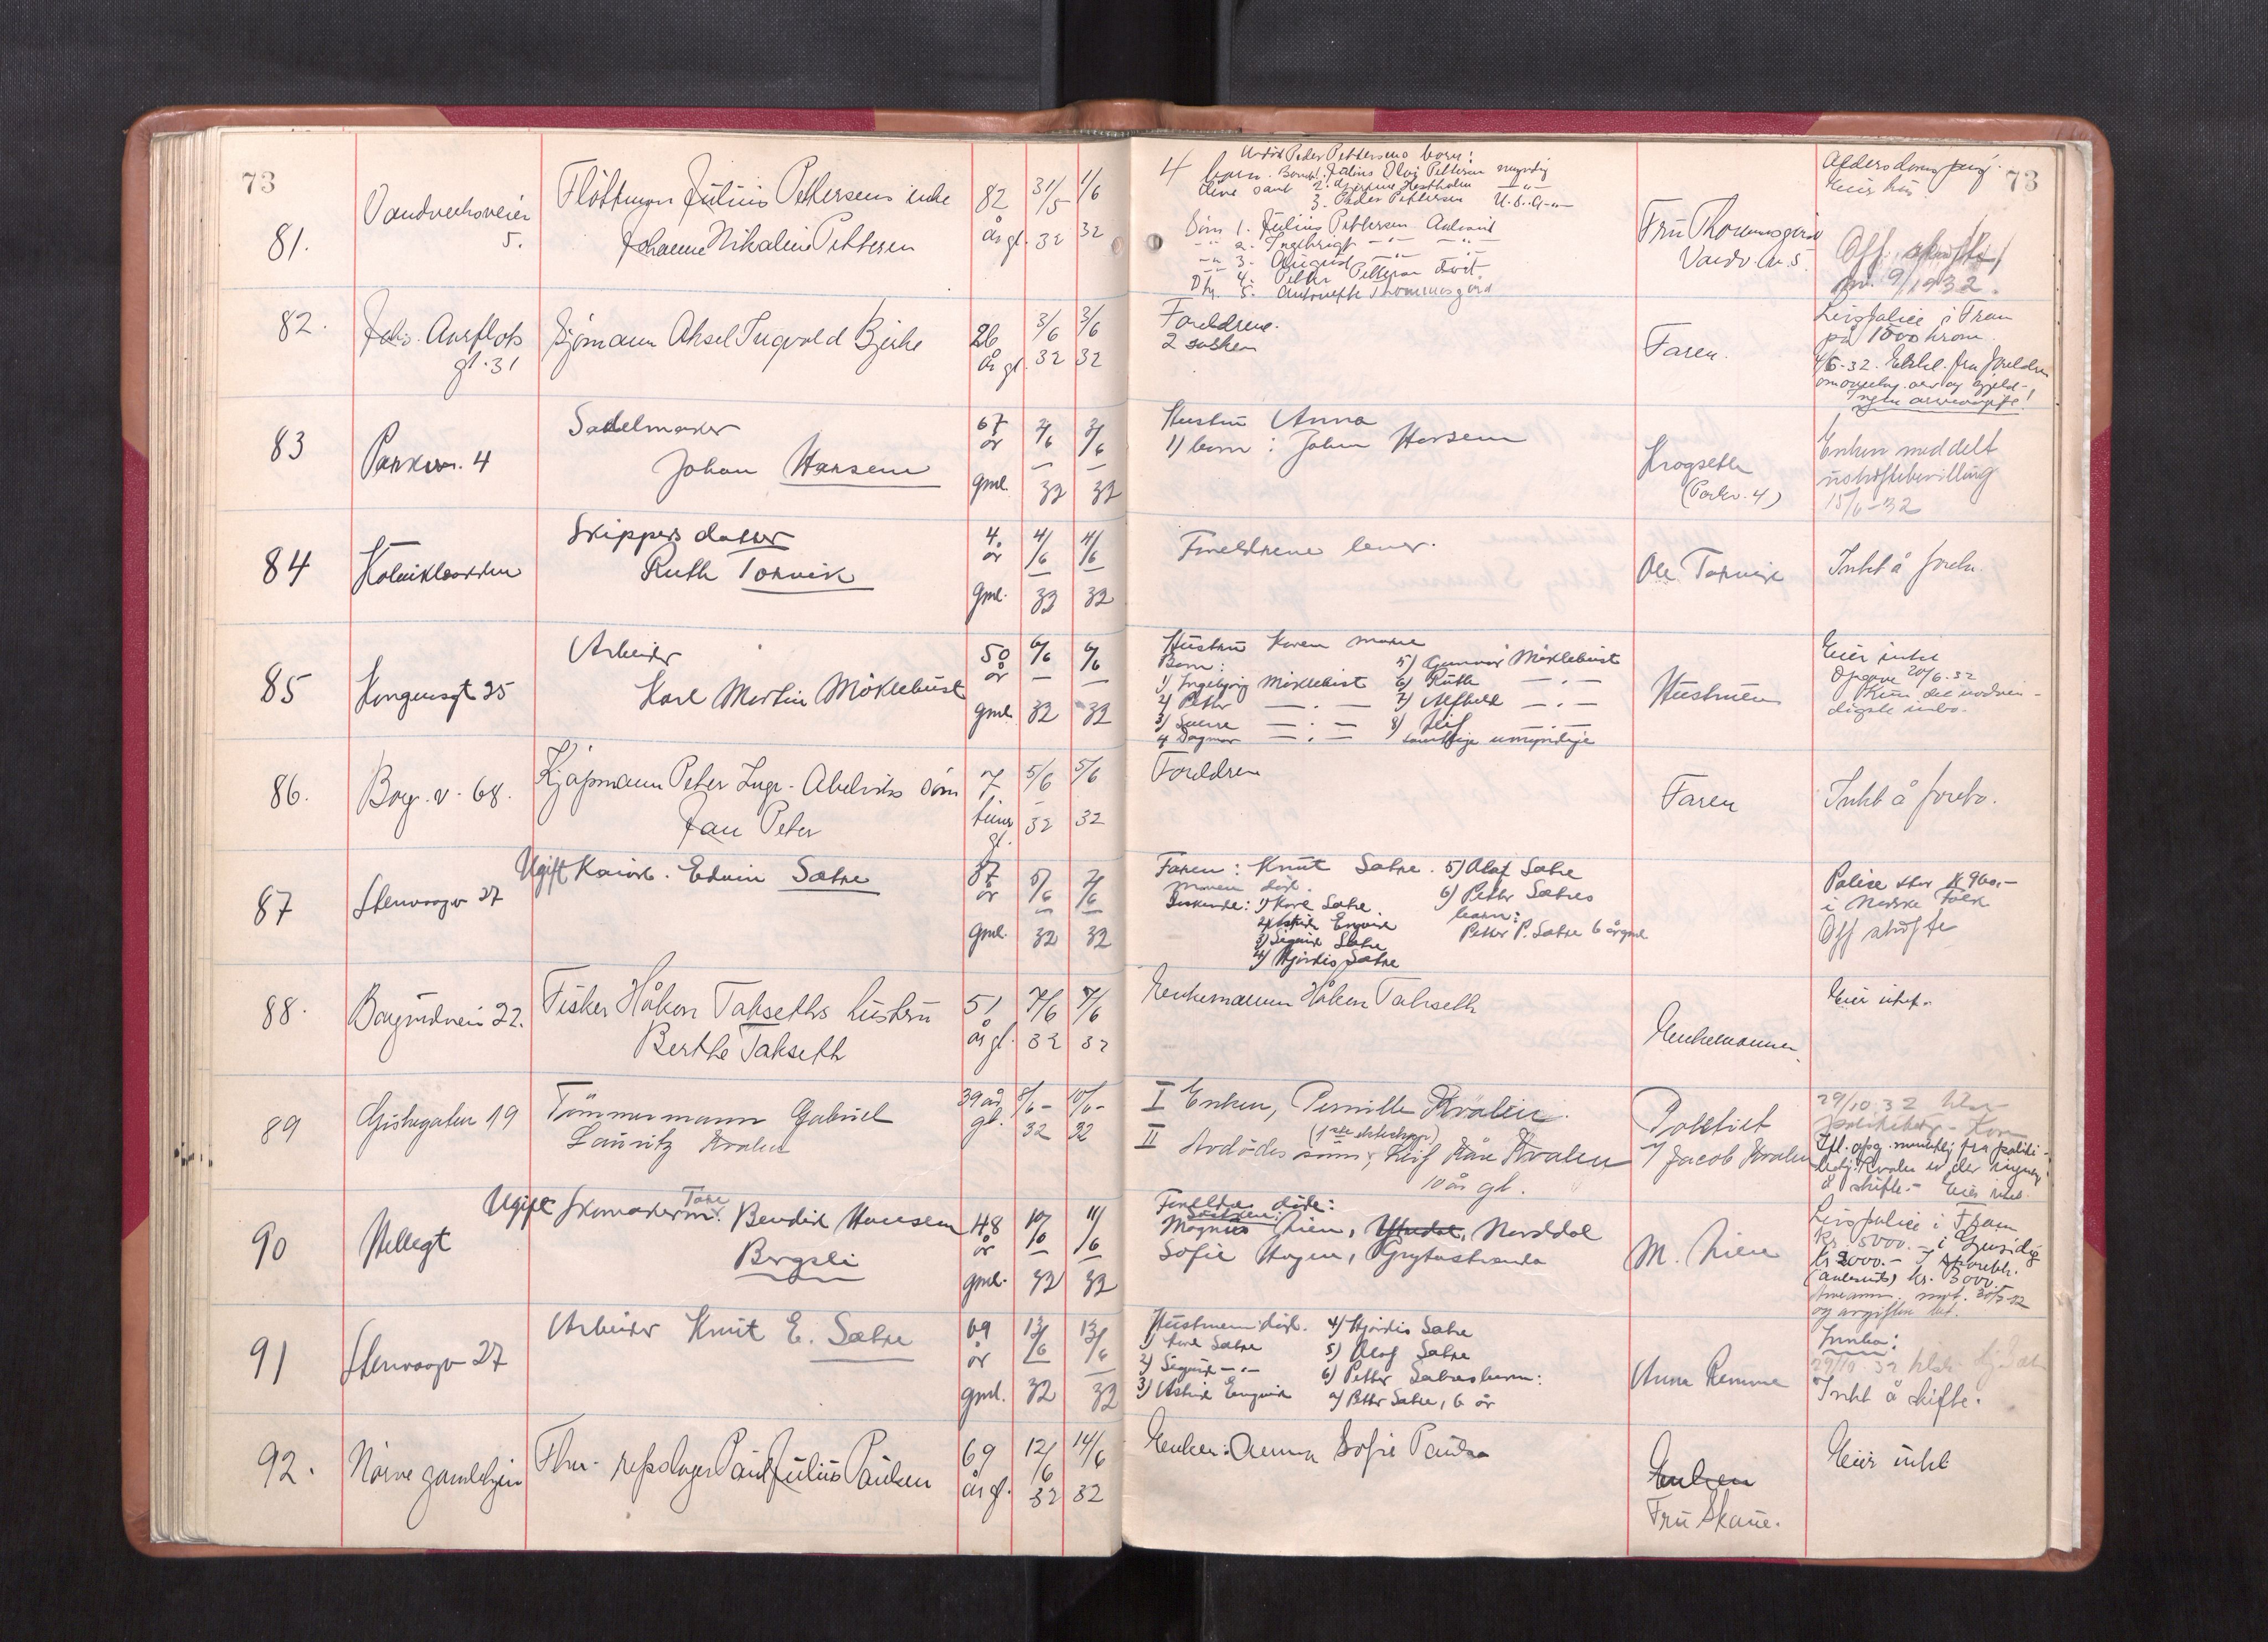 73
73
81.
Vandverksveien
5.
Flöttmann Julius Pettersens enke
Johanne Nikoline Pettersen
82
år gl.
31/5 32
1/6 32
4 barn.
Avdöd Peder Pettersens barn:
1. Julius Olai Pettersen myndig
3. Peder Pettersen U.S.A.
Sönn 1. Julius Pettersen Aalesund
2. Ingebrigt
3. August
4. Petter Pettersen
Dtr. 5. Antonette Thommesgård
Fru Thommesgård
Vandv. v. 5.
Alderdoms
Eier hus
Off. skifte
9/1932.
82.
Johs. Aarflots
gt. 31
Sjömann Aksel Ingvald Bjerke
26
år gl.
3/6 32
3/6 32
Foreldrene.
2 søsken
Faren.
Livspolice i Fram
på 1500 kroner.
4/6-32. Erkl. fra foreldre
om overtag. arv og gjeld.
Ingen arveavgift!
83
Parkvn. 4
Sadelmaker
Johan Hansen
67
år
gml.
2/6 32
3/6 32
Hustru Anna
1) barn: Johan Hansen
Krogseth
(Parkv. 4)
Enken meddelt
uskiftebevilling
15/6-32
84
Skippers datter
Ruth Torvik
4
år
gml.
4/6 32
4/6 32
Foreldrene lever.
Ole Torvik
Intet å
85
Kongensgt 25
Arbeider
Karl Martin Möklebust
50
år
gml.
6/6 32
6/6 32
Hustru Karen Marie
Barn:
1) Ingebjörg Möklebust
2) Petter
3) Sverre
4 Dagmar
5) Gunvor Möklebust
6) Ruth
7) Alfhild
8) Leif
samtlige umyndige
Hustruen
Eier intet
Opgave 20/6.32
Kun det nödven-
digste inbo.
86.
Borg. v. 68.
Kjøpmann Peter Ingv. Abelviks sönn
Jan Peter
7
timer
gl.
5/6 32
5/6 32
Foreldre
Faren
Intet å foreta.
87
Stenvaagv 27
Ugift Edvin Sætre
37
år
gml.
5/6 32
7/6 32
Faren: Knut Sætre.
Moren död.
Søskende: 1) Kåre Sætre
2) Astrid Engvik
3) Sigurd Sætre
4) Hjördis Sætre
5) Olaf Sætre
6) Petter Sætres
barn:
Petter P. Sætre 6 år gml
Police stor K 960.-
i Norske Folk
Off skifte
88.
Borgundveien 22.
Fisker Håkon Takseths hustru
Berthe Takseth
51
år gl.
7/6 32
7/6 32
Enkemannen Håkon Takseth
Enkemannen.
Eier intet.
89
Giskegaten 19
Tömmermann Gabriel
Lauritz Kvalen
39 år
gl.
8/6-32
10/6-32
I Enken, Pernille Kvalen.
(1ste ekteskap)
II Avdödes sönn, Leif Kåre Kvalen
10 år gl.
Politiet
v/ Jacob Kvalen
29/10 32
Ifl. opg. muntlig fra politi-
betj. Kvalen er der ingen
å skifte. Eier intet
90
Hellegt
Ugift Skomakerm. Tore Bendik Hansen
Bergsli
48
år
gml.
10/6 32
11/6 32
Foreldre döde:
Söskend:
Magnus Lien, Norddal
Sofie Hagen, Grytastranda
M. Lien
Livspolice i Fram
kr. 5000.- i Gjensidig
kr 2000.- I Sparebk.
(Aalesunds) kr. 3000.
og avgiften bet.
91
Stenvaagv 27
Arbeider Knut E. Sætre
69
år
gml.
13/6 32
13/6 32
Hustruen död.
1) Kåre Sætre
2) Sigurd
3) Astrid Engvik
4) Hjördis Sætre
5) Olaf Sætre
6) Petter Sætres barn:
a) Petter Sætre, 6 år
Anna Remme
Innbo:
29/10.32
Intet å skifte.
92.
Nörve gamlehjem
Fhv. repslager Paul Julius Paulsen
69
år gl.
12/6 32
14/6 32
Enken: Anna Sofie Paulsen
Enken
Fru Skaue.
Eier intet